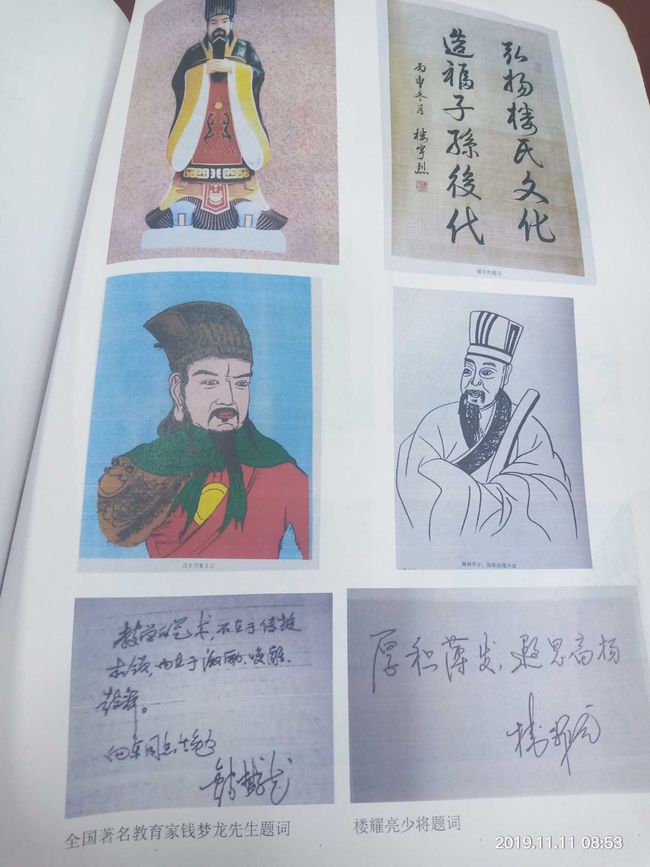 弘扬楼氏文化
造福子孫後代
丙申冬月 楼宇烈
楼宇烈题词
教学的艺术,不在于传授
本领,而在于激励、唤醒、
鼓舞。
钱梦龙
厚积薄发,遐思高扬
楼耀亮
全国著名教育家钱梦龙先生题词
楼耀亮少将题词
2019.11.11 08:53